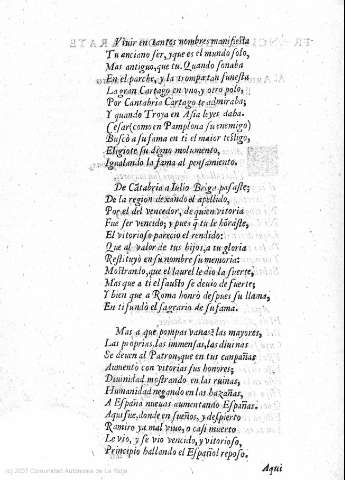 Viuir en tantos nombres manifiesta
Tu anciano ser, y que es el mundo solo,
Mas antiguo, que tu. Quando sonaba
En el parche, y la trompa tan funesta
La gran Cartago en vno, y otro polo,
Por Cantabria Cartago te admiraba;
Y quando Troya en Asia leyes daba.
Cesar (como en Pamplona su enemigo)
Buscò a su fama en ti el maior testigo,
Eligiote su digno monumento,
Igualando la fama al pensamiento.
De Cãtabria a Iulio Briga passaste;
De la region dexando el apellido,
Por el del vencedor, de quien vitoria
Fue ser vencido; y pues q̃ tu le hõraste,
El vitorioso parecio el rendido:
Que al valor de tus hijos, a tu gloria
Restituyò en su nombre su memoria:
Mostrando, que el laurel le dio la suerte,
Mas que a ti el fausto se deuio de fuerte;
Y bien que a Roma honrò despues su llama,
En ti fundò el sagrario de su fama.
Mas a que pompas vanas? las mayores,
Las proprias, las immensas, las diuinas
Se deuen al Patron, que en tus campañas
Aumentò con vitorias sus honores;
Diuinidad mostrando en las ruinas,
Humanidad negando en las hazañas,
A España nueuas aumentando Españas.
Aqui fue, donde en sueños, y despierto
Ramiro ya mal viuo, o casi muerto
Le vio, y se vio vencido, y vitorioso,
Principio hallando el Español reposo.
Aqui
(c) 2007 Comunidad Autónoma de La Rioja